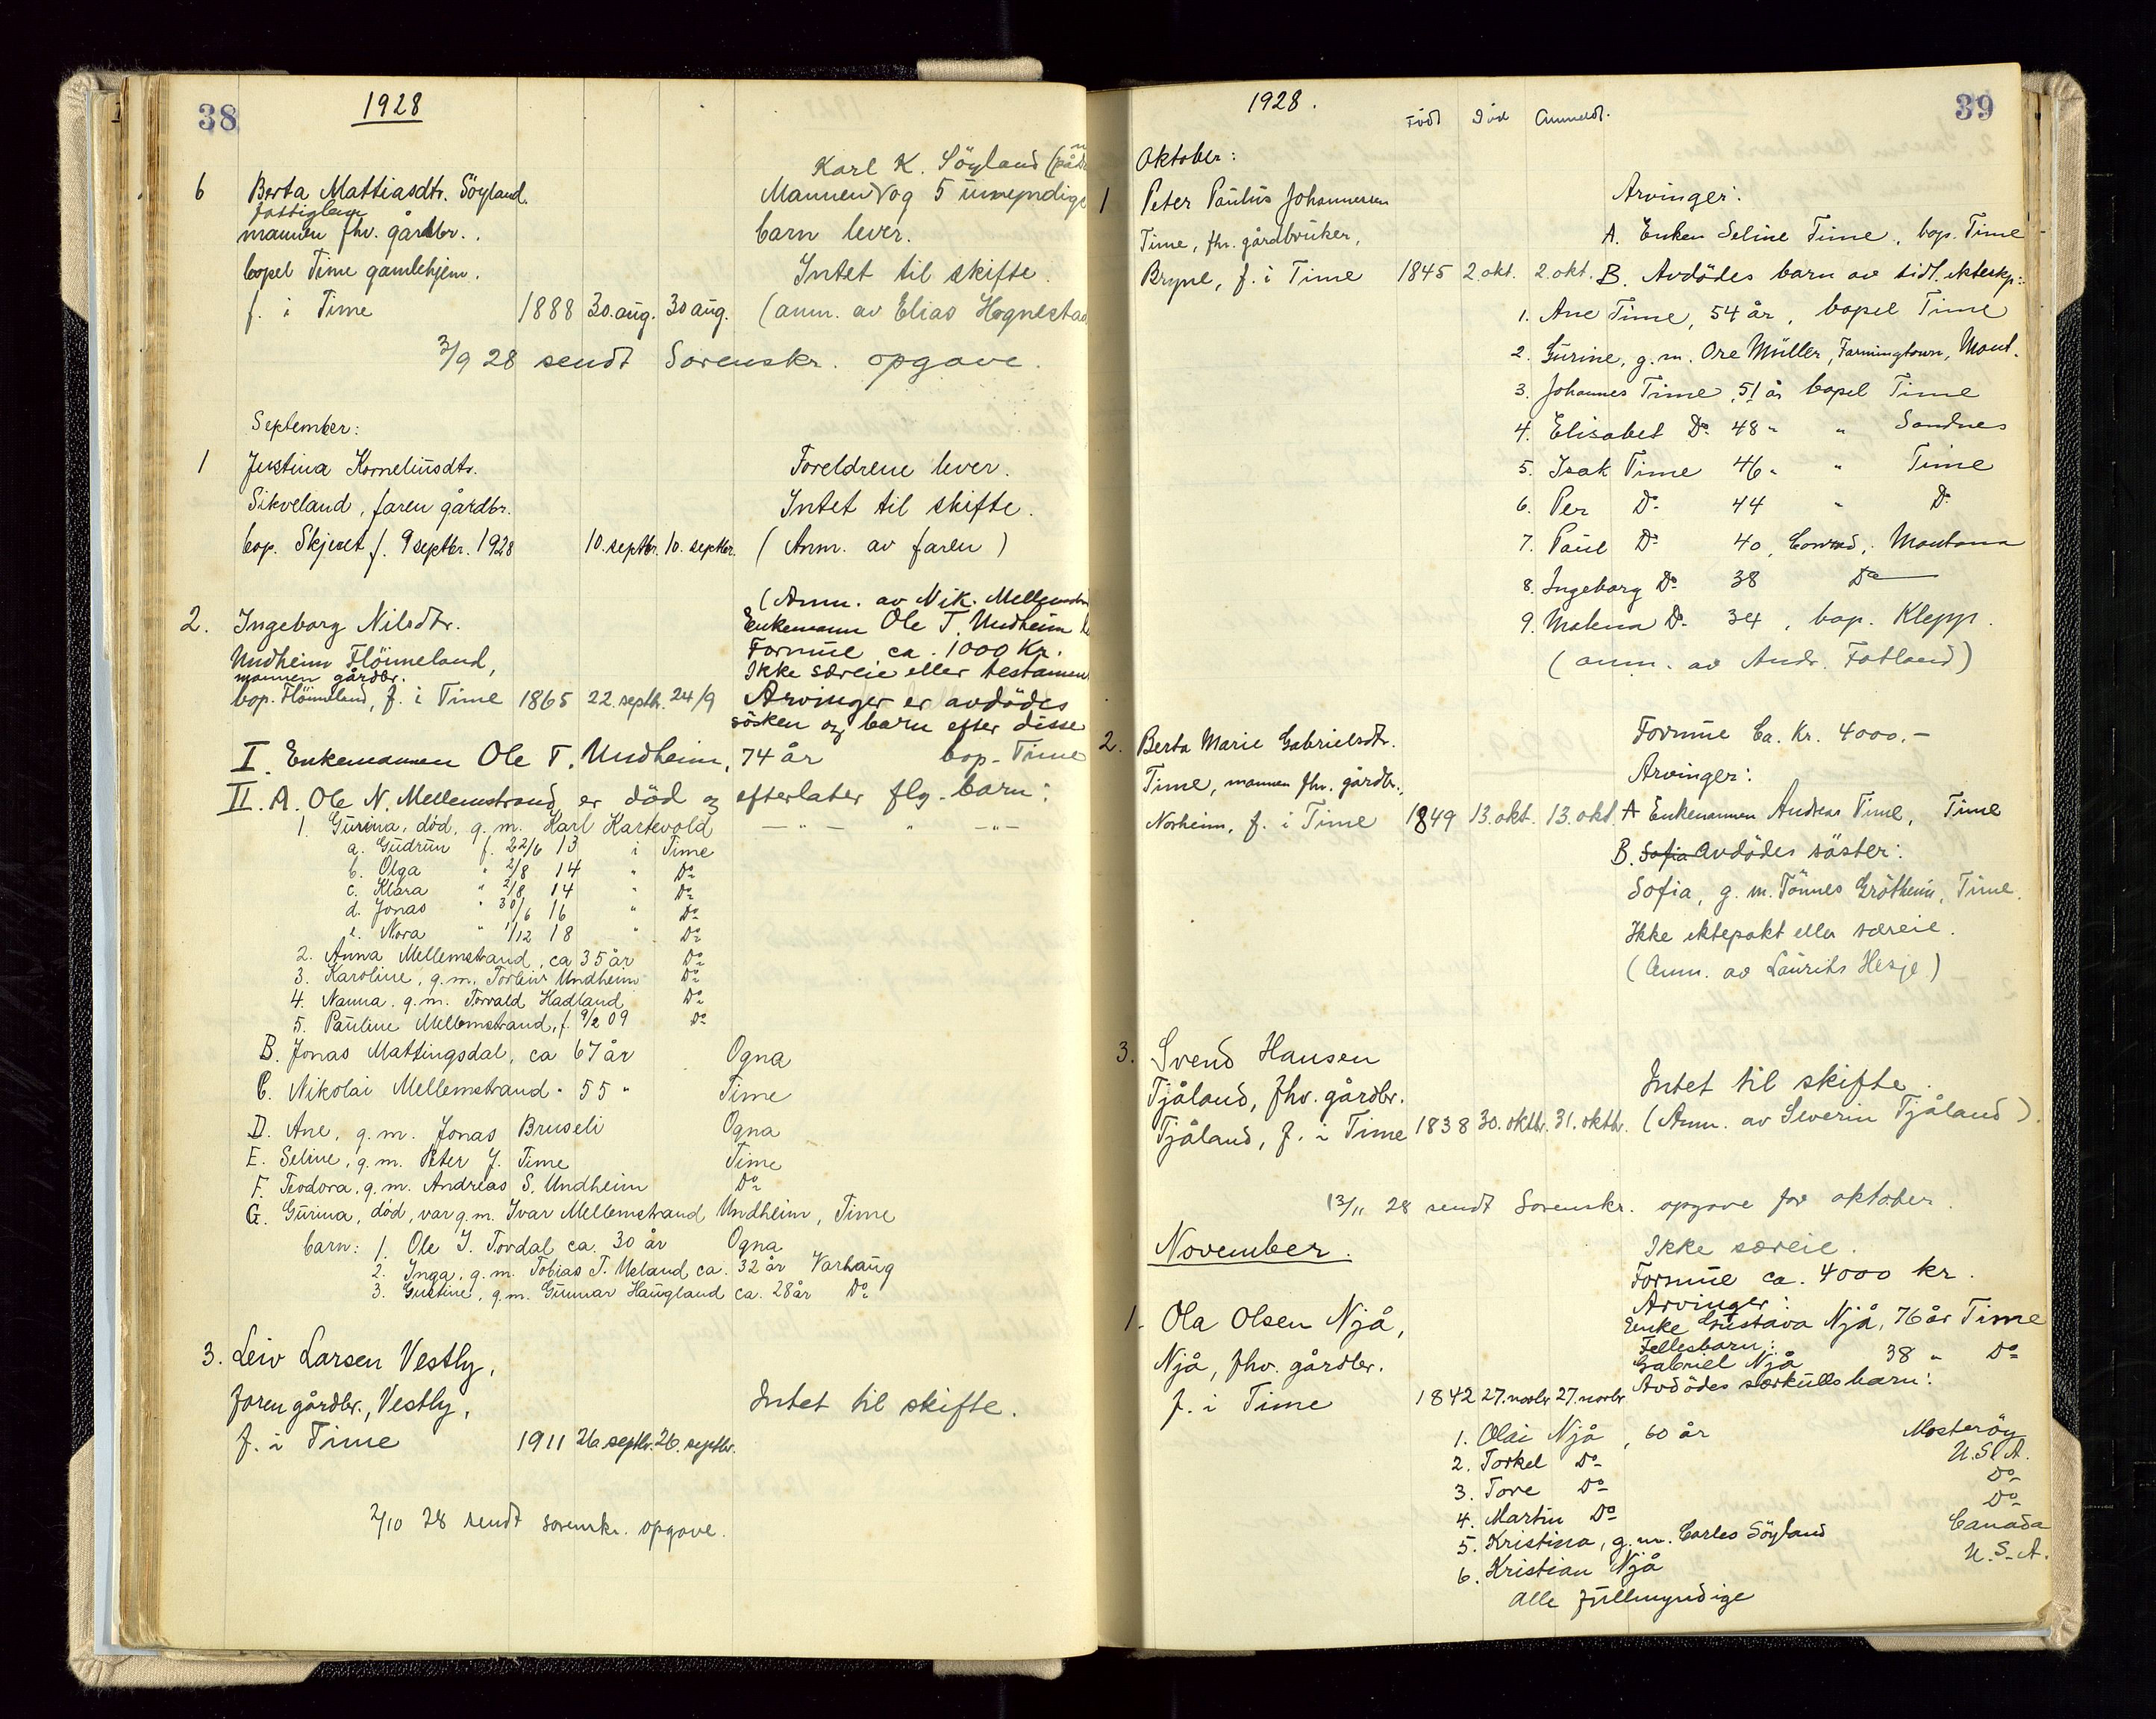 38
1928
Karl K. Söyland
6 Berta Mattiasdtr. Söyland. Mannen og 5 umyndige
fattiglem
mannen fhv. gårdbr. barn lever.
bopel Time gamlehjem. Intet til skifte.
f. i Time 1888 30. aug. 30 aug. (anm. av Elias Hognestad
3/9 28 sendt Sorenskr. opgave.
September:
1 Justina Korneliusdtr. Foreldrene lever.
Sikveland, faren gårdbr. Intet til skifte.
bop. Skjevet, f. 9 septbr. 1928 10. septbr. 10. septbr. (Anm. av faren)
(Anm. av Nik. Mellemstrand
2. Ingeborg Nilsdtr. Enkemann Ole T. Undheim
Undheim Flöimeland, Formue ca. 1000 Kr.
mannen gårdbr. Ikke særeie eller testament
bop. Flöimeland, f. i Time 1865 22. septbr. 24/9 Arvinger er avdödes
sösken og barn efter disse
I. Enkemannen Ole T. Undheim, 74 år bop. Time
II. A. Ole N. Mellemstrand er död og efterlater flg. barn:
1. Gurina, död, g.m. Karl Kartevold — " — " — " —
a. Gudrun f. 22/6 13 i Time
b. Olga " 2/8 14 " Do
c. Klara " 2/8 14 " Do
d. Jonas " 30/6 16 " Do
e. Nora " 1/12 18 " Do
2. Anna Mellemstrand, ca 35 år Do
3. Karoline, g.m. Torleiv Undheim Do
4. Nanna, g.m. Torvald Hadland Do
5. Pauline Mellemstrand, f. 9/2 09 Do
B. Jonas Mattingsdal, ca 67 år Ogna
C. Nikolai Mellemstrand " 55 " Time
D. Ane, g.m. Jonas Bruseli Ogna
E. Seline, g.m. Peter J. Time Time
F. Teodora, g.m. Andreas S. Undheim Do
G. Gurina, död, var g.m. Ivar Mellemstrand Undheim, Time
barn: 1. Ole I. Tordal ca. 30 år Ogna
2. Inga, g.m. Tobias T. Ueland ca. 32 år Varhaug
3. Gustine, g.m. Gunnar Haugland ca. 28 år Do
3. Leiv Larsen Vestly,
faren gårdbr., Vestly, Intet til skifte.
f. i Time 1911 26 septbr. 26. septbr.
2/10 28 sendt sorenskr. opgave.
39
1928.
Født Död Anmeldt.
Oktober:
1 Peter Paulus Johannessen Arvinger:
Time, fhv. gårdbruker, A. Enken Seline Time, bop. Time
Bryne, f. i Time 1845 2. okt. 2. okt. B. Avdödes barn av tidl. ekteskp:
1. Ane Time, 54 år, bopel Time
2. Gurine, g.m. Ore Müller, Farmingtown, Mont.
3. Johannes Time, 51 år bopel Time
4. Elisabet Do 48 " " Sandnes
5. Isak Time 46 " " Time
6. Per Do 44 " Do
7. Paul Do 40, Conrad, Montana
8. Ingeborg Do 38 Do
9. Malena Do 34, bop. Klepp.
(anm. av Andr. Fotland)
Formue Ca. Kr. 4000.-
2. Berta Marie Gabrielsdtr. Arvinger:
Time, mannen fhv. gårdbr.,
Norheim, f. i Time 1849 13. okt. 13. okt. A Enkemannen Andreas Time, Time
B. Sofia Avdödes söster:
Sofia, g.m. Tönnes Grötheim, Time.
Ikke ektepakt eller særeie.
(Anm. av Laurits Hesje)
3. Svend Hansen
Tjåland, fhv. gårdbr. Intet til skifte.
Tjåland, f. i Time 1838 30. oktbr. 31. oktbr. (Anm. av Severin Tjåland).
13/11 28 sendt Sorenskr. opgave for oktober.
November. Ikke særeie.
Formue ca. 4000 kr.
Arvinger:
1. Ola Olsen Njå, Enke Gustava Njå, 76 år Time
Fellesbarn:
Njå, fhv. gårdbr. Gabriel Njå 38 " Do
f. i Time 1842 27. novbr. 27. novbr. Avdödes særkullsbarn:
1. Olai Njå, 60 år Mosteröy
2. Torkel Do U.S.A.
3. Tore Do Do
4. Martin Do Do
5. Kristina, g.m. Carles Söyland Canada
6. Kristian Njå U.S.A.
Alle fullmyndige